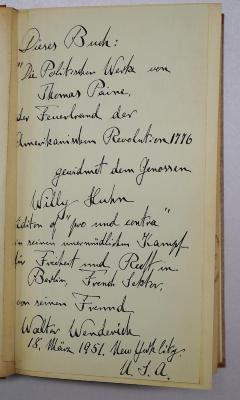 Dieses Buch:
"Die Politischen Werke von
Thomas Paine,
der Feuerbrand der
Amerikanischen Revolution 1776
gewidmet dem Genossen
Willy Huhn
Editon of "pro und contra"
in seinen unermüdlichem Kampf
für Freiheit und Recht, in
Berlin, French Sektor,
von seinem Freund
Walter Wenderich
18. März 1951. New York City.
U. S. A.